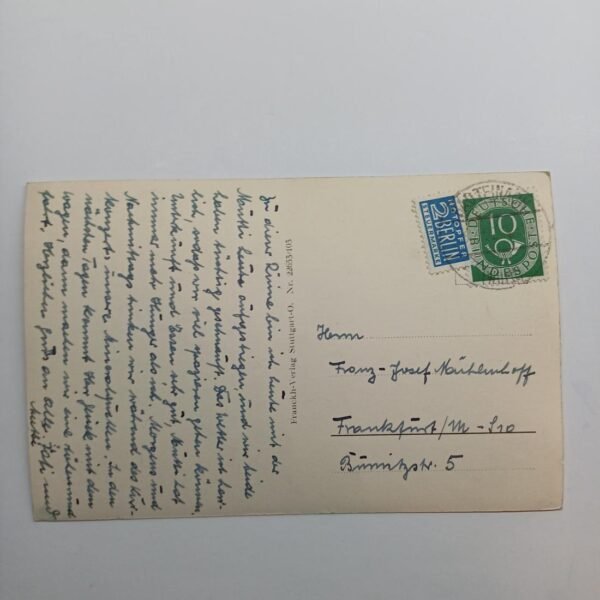 Zu dieser Ruine bin ich heute mit der
Mutti heute aufgestiegen, und wir beide
haben tüchtig geschnauft. Das Wetter ist herr-
lich, sodass wir viel spazieren gehen können.
Unterkunft und Essen sehr gut, Mutti hat
immer mehr Hunger als ich. Morgens und
Nachmittags trinken wir während des Kur-
konzerts unsere Mineralquellen. In den
nächsten Tagen kommt Herr mit dem
wagen, dann machen wir eine
fahrt. Herzlichen Gruß an alle
und
Mutti
Franckh-Verlag Stuttgart-O. Nr. 22653/103
NOTOPFER
2 BERLIN
STEUERMARKE
DEUTSCHE
10
BUNDESPOST
Herrn
Franz-Josef
Frankfurt/M-S10
5